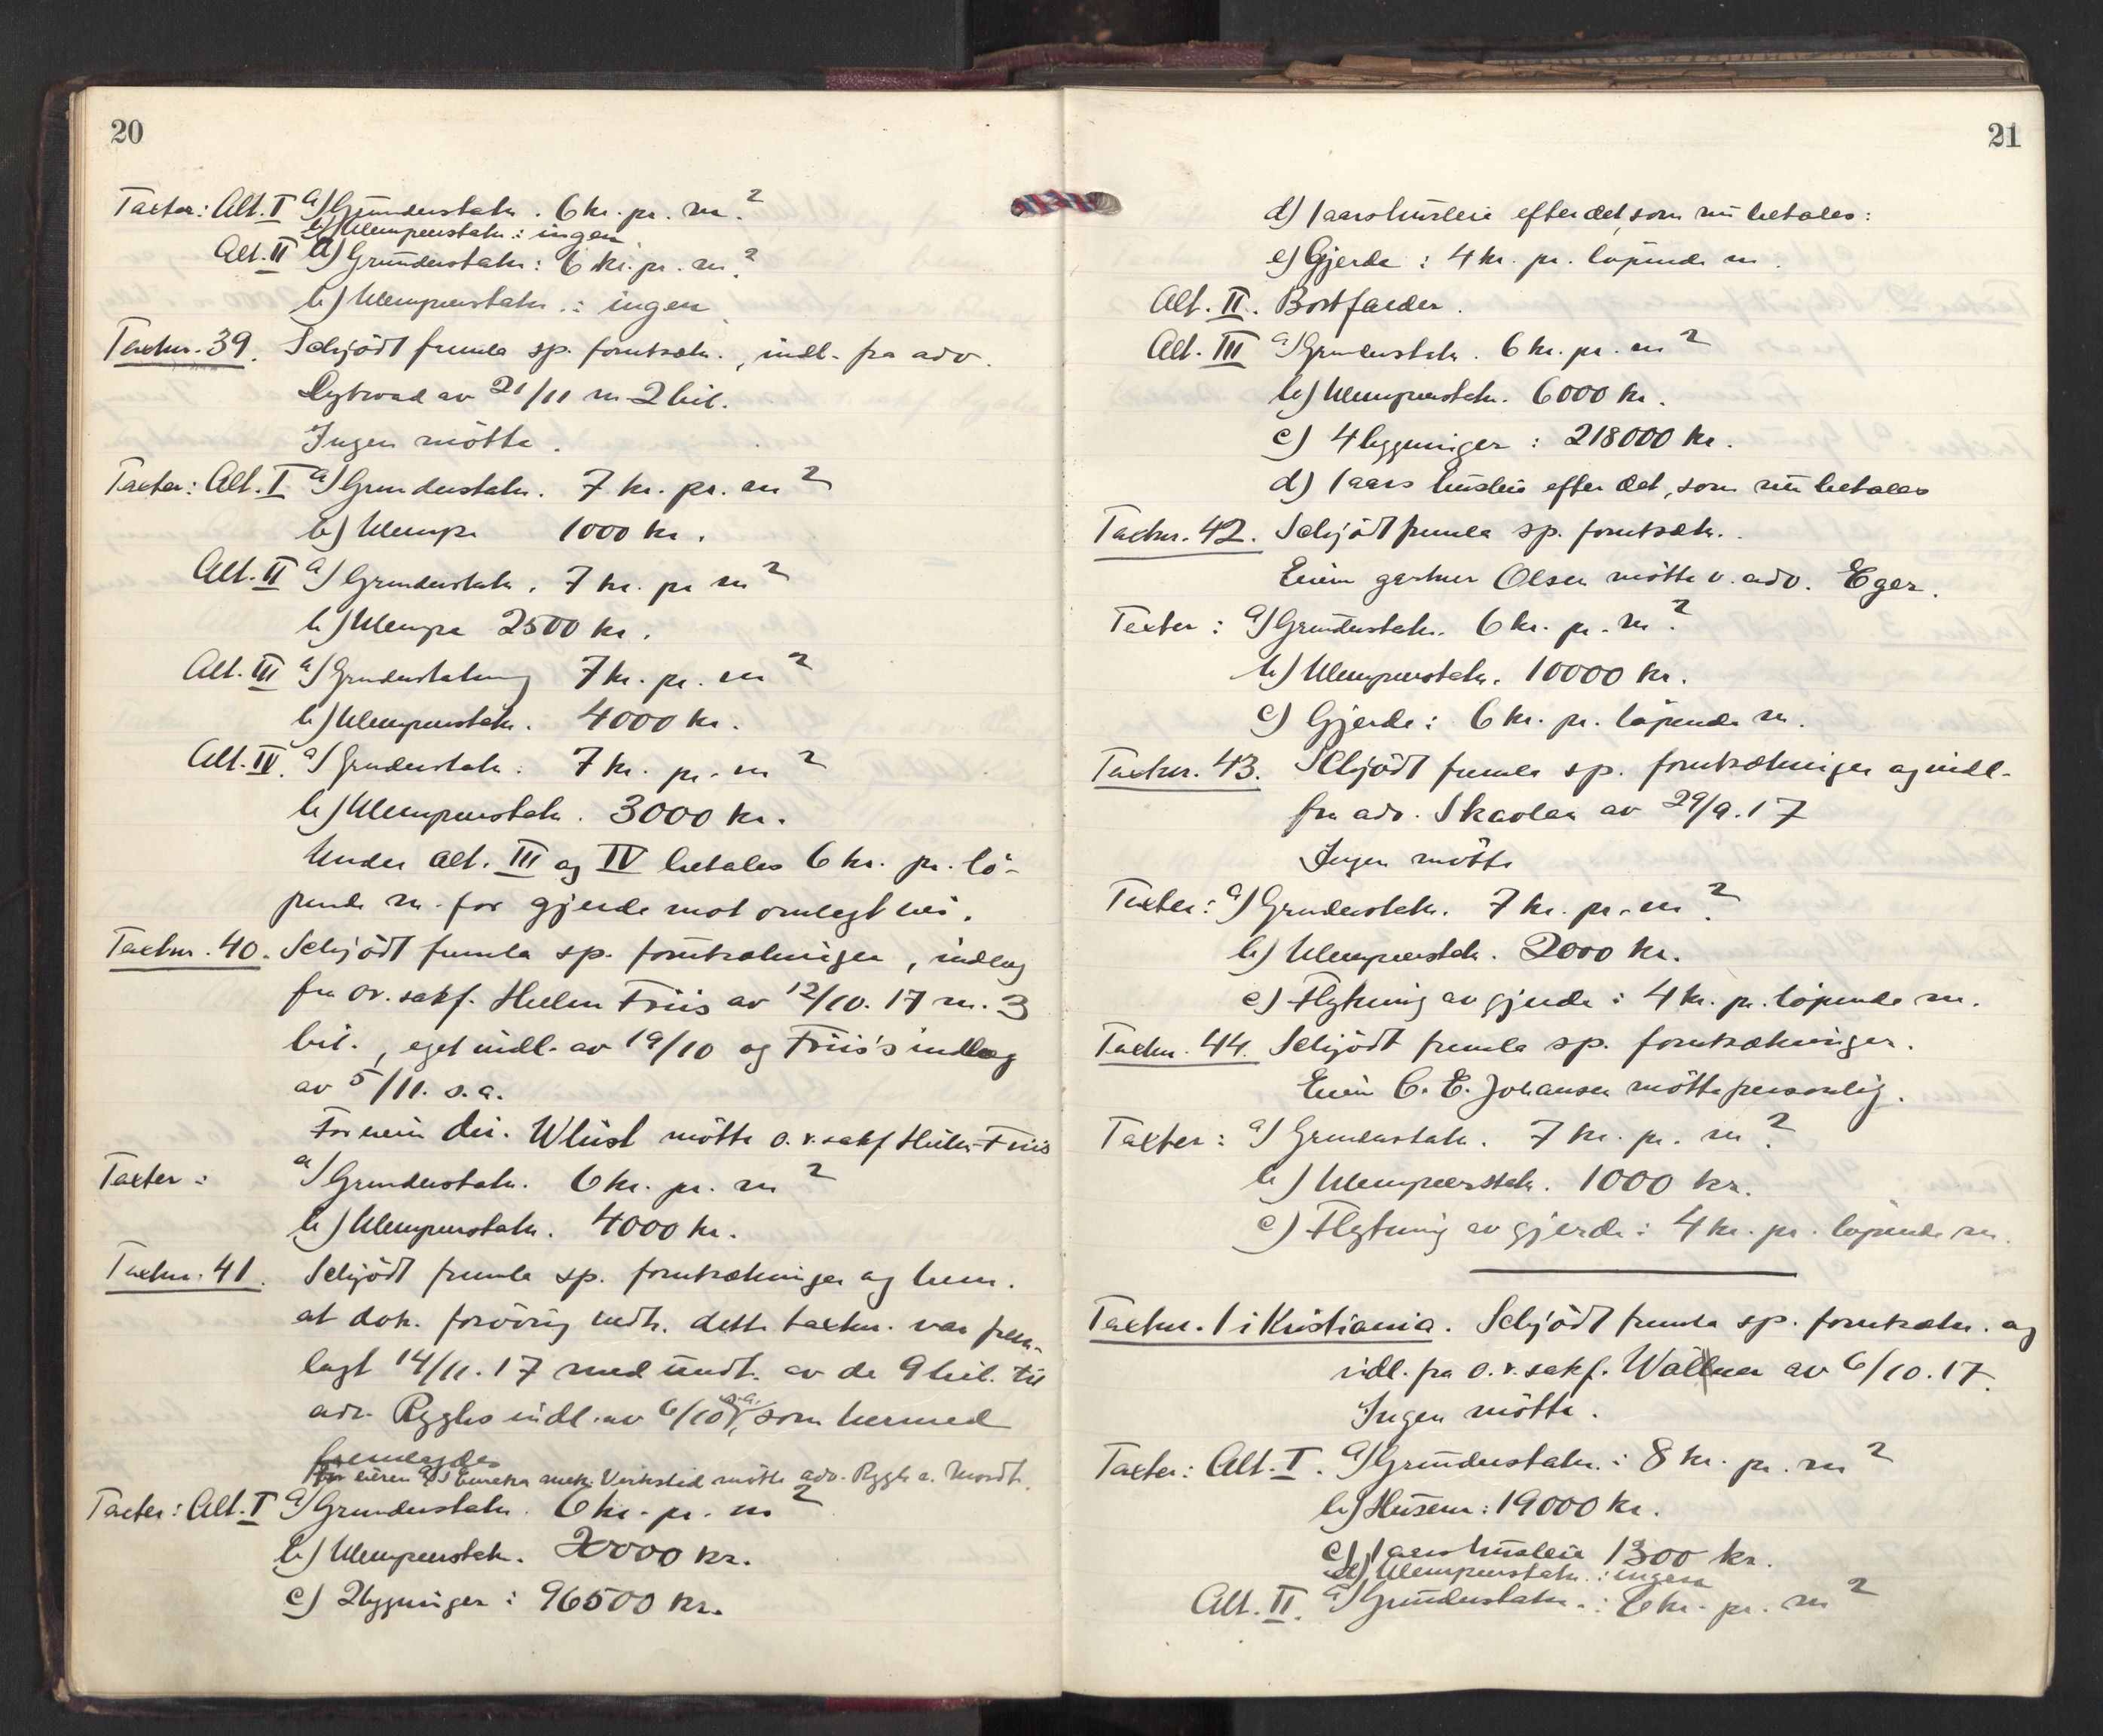 20
Taxter: Alt. I a) Grunderstatn. 6 kr. pr. m²
b) Ulempeerstatn.: ingen
Alt. II a) Grunderstatn: 6 kr. pr. m²
b) Ulempeerstatn.: ingen
Taxtnr. 39. Schjödt fremla sp. forutsætn., indl. fra adv.
av 21/11 m 2 bil.
Ingen mötte.
Taxter: Alt. I a) Grunderstatn. 7 kr. pr. m²
b) Ulempe 1000 kr.
Alt. II a) Grunderstatn. 7 kr. pr m²
b) Ulempe 2500 kr.
Alt. III a) Grunderstatning 7 kr. pr. m²
b) Ulempeerstatn. 4000 kr.
Alt. IV. a) Grunderstatn. 7 kr. pr. m²
b) Ulempeerstatn. 3000 kr.
Under alt. III og IV betales 6 kr. pr. lö-
pende m. for gjerde mot omlagt vei.
Taxtnr. 40. Schjödt fremla sp. forutsætninger, indlæg
fra o.r.sakf. Helm Friis av 12/10. 17 m. 3
bil., eget indl. av 19/10 og Friis's indlæg
av 5/11. s.a.
For eieren dir. Wüst mötte o.r.sakf Helm-Friis
Taxter: a) Grunderstatn. 6 kr. pr. m²
b) Ulempeerstatn. 4000 kr.
Taxtnr. 41. Schjödt fremla sp. forutsætninger og bem.
at dok. forövrig vedr. dette taxtnr. var frem-
lagt 14/11. 17 med undt. av de 9 bil. til
adv. Ryghs indl. av 6/10 s.a., som hermed
fremlagdes
For eieren A/S Eureka mek. Verksted mötte adv. Rygh e. Mordt.
Taxter: Alt. I a) Grunderstatn. 6 kr. pr. m²
b) Ulempeerstatn. 20000 kr.
c) 2 bygninger: 96500 kr.
21
d) 1 aars husleie efter det, som nu betales:
e) Gjerde: 4 kr. pr. löpende m.
Alt. II. Bortfalder.
Alt. III a) Grunderstatn. 6 kr. pr. m²
b) Ulempeerstatn. 6000 kr.
c) 4 bygninger: 218000 kr.
d) 1 aars husleie efter det, som nu betales
Taxtnr. 42. Schjödt fremla sp. forutsætn.
Eieren gartner Olsen mötte v. adv. Eger.
Taxter: a) Grunderstatn. 6 kr. pr. m²
b) Ulempeerstatn. 10000 kr.
c) Gjerde: 6 kr. pr. löpende m.
Taxtnr. 43. Schjödt fremla sp. forutsætninger og indl.
fra adv. Skavlan av 29/9. 17
Ingen mötte
Taxter: a) Grunderstatn. 7 kr. pr. m²
b) Ulempeerstatn. 2000 kr.
c) Flytning av gjerde: 4 kr. pr. löpende m.
Taxtnr. 44. Schjödt fremla sp. forutsætninger.
Eieren C. E. Johansen mötte personlig.
Taxter: a) Grunderstatn. 7 kr. pr. m²
b) Ulempeerstatn. 1000 kr.
c) Flytning av gjerde: 4 kr. pr. löpende m.
Taxtnr. 1 i Kristiania. Schjödt fremla sp. forutsætn. og
indl. fra o.r.sakf. av 6/10. 17.
Ingen mötte.
Taxter: Alt. I. a) Grunderstatn.: 8 kr. pr. m²
b) Husene: 19000 kr.
c) 1 aars husleie 1300 kr.
d) Ulempeerstatn.: ingen
Alt. II. a) Grunderstatn.: 6 kr. pr. m²